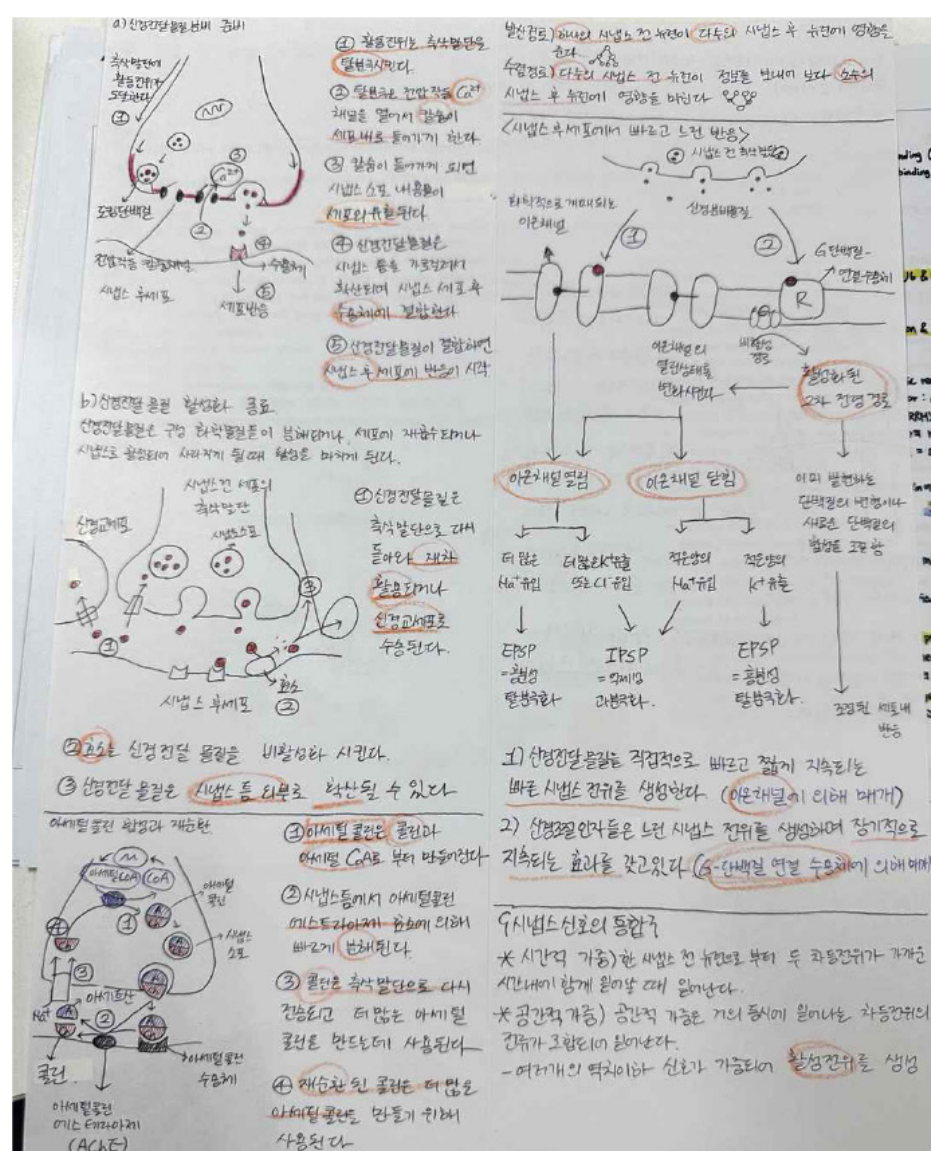 a) 신경전달물질 분비 준비
축삭말단에
활동전위가
도달한다
①
③
Ca²⁺
②
④
도킹단백질
전압작동 칼슘채널
수용체
시냅스 후세포
⑤
세포반응
① 활동전위는 축삭말단을
탈분극시킨다.
② 탈분극은 전압작동 Ca²⁺
채널을 열어서 칼슘이
세포내로 들어가게 한다
③ 칼슘이 들어가게 되면
시냅스 소포 내용물이
세포외유출된다.
④ 신경전달물질은
시냅스 틈을 가로질러서
확산되며 시냅스 세포 후
수용체에 결합한다
⑤ 신경전달물질이 결합하면
시냅스 후세포에 반응이 시작
b) 신경전달 물질 활성화 종료
신경전달물질은 구성 화학물질들이 분해되거나, 세포에 재흡수되거나
시냅스로 확산되어 사라지게 될 때 활성을 마치게 된다.
시냅스전 세포의
축삭말단
신경교세포
시냅스소포
①
③
효소
②
시냅스 후세포
① 신경전달물질은
축삭말단으로 다시
돌아와 재차
활용되거나
신경교세포로
수송된다.
② 효소는 신경전달 물질을 비활성화 시킨다.
③ 신경전달 물질은 시냅스 틈 외부로 확산될 수 있다
아세틸콜린 합성과 재순환
아세틸CoA
CoA
아세틸
콜린
①
A
Ch
시냅스
소포
③
아세트산
Na⁺
②
콜린
아세틸콜린
수용체
아세틸콜린
에스테라아제
(AChE)
① 아세틸 콜린은 콜린과
아세틸 CoA로 부터 만들어진다
② 시냅스틈에서 아세틸콜린
에스트라아제 효소에 의해
빠르게 분해된다.
③ 콜린은 축삭말단으로 다시
전송되고 더 많은 아세틸
콜린을 만드는데 사용된다
④ 재순환 된 콜린은 더 많은
아세틸 콜린을 만들기 위해
사용된다
발산경로) 하나의 시냅스 전 뉴런이 다수의 시냅스 후 뉴런에 영향을
준다
수렴경로) 다수의 시냅스 전 뉴런이 정보를 보내어 보다 소수의
시냅스 후 뉴런에 영향을 미친다
<시냅스 후세포에서 빠르고 느린 반응>
시냅스 전 축삭말단
화학적으로 개폐되는
이온채널
신경분비물질
①
②
G단백질-
연결수용체
R
이온채널의
열린상태를
변화시킨다
비활성
경로
활성화된
2차 전령 경로
이온채널 열림
이온채널 닫힘
이미 발현하는
단백질의 변형이나
새로운 단백질의
합성을 조절함
더 많은
Na⁺유입
더 많은 K⁺유출
또는 Cl⁻유입
적은양의
Na⁺유입
적은양의
K⁺유출
EPSP
=흥분성
탈분극화
IPSP
=억제성
과분극화.
EPSP
=흥분성
탈분극화.
조정된 세포내
반응
1) 신경전달물질들 직접적으로 빠르고 짧게 지속되는
빠른 시냅스 전위를 생성한다. (이온채널에 의해 매개)
2) 신경조절인자들은 느린 시냅스 전위를 생성하며 장기적으로
지속되는 효과를 갖고있다 (G-단백질 연결 수용체에 의해 매개)
시냅스 신호의 통합
* 시간적 가중) 한 시냅스 전 뉴런으로 부터 두 차등전위가 가까운
시간내에 함께 일어날 때 일어난다.
* 공간적 가중) 공간적 가중은 거의 동시에 일어나는 차등전위의
전류가 조합되어 일어난다.
- 여러개의 역치이하 신호가 가중되어 활성전위를 생성